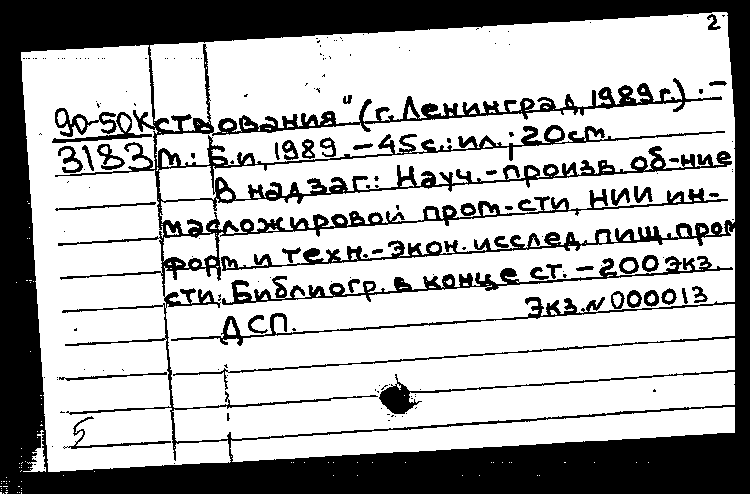 2
90-50К ствования" (г. Ленинград, 1989г.) . –
3183 М.: Б.и., 1989. – 45с.: ил.; 20см.
В надзаг.: Науч.-произв. об-ние
масложировой пром-сти, НИИ ин-
форм. и техн.-экон. исслед. пищ. пром-
сти. Библиогр. в конце ст. – 200 экз.
ДСП. Экз. N 000013
5